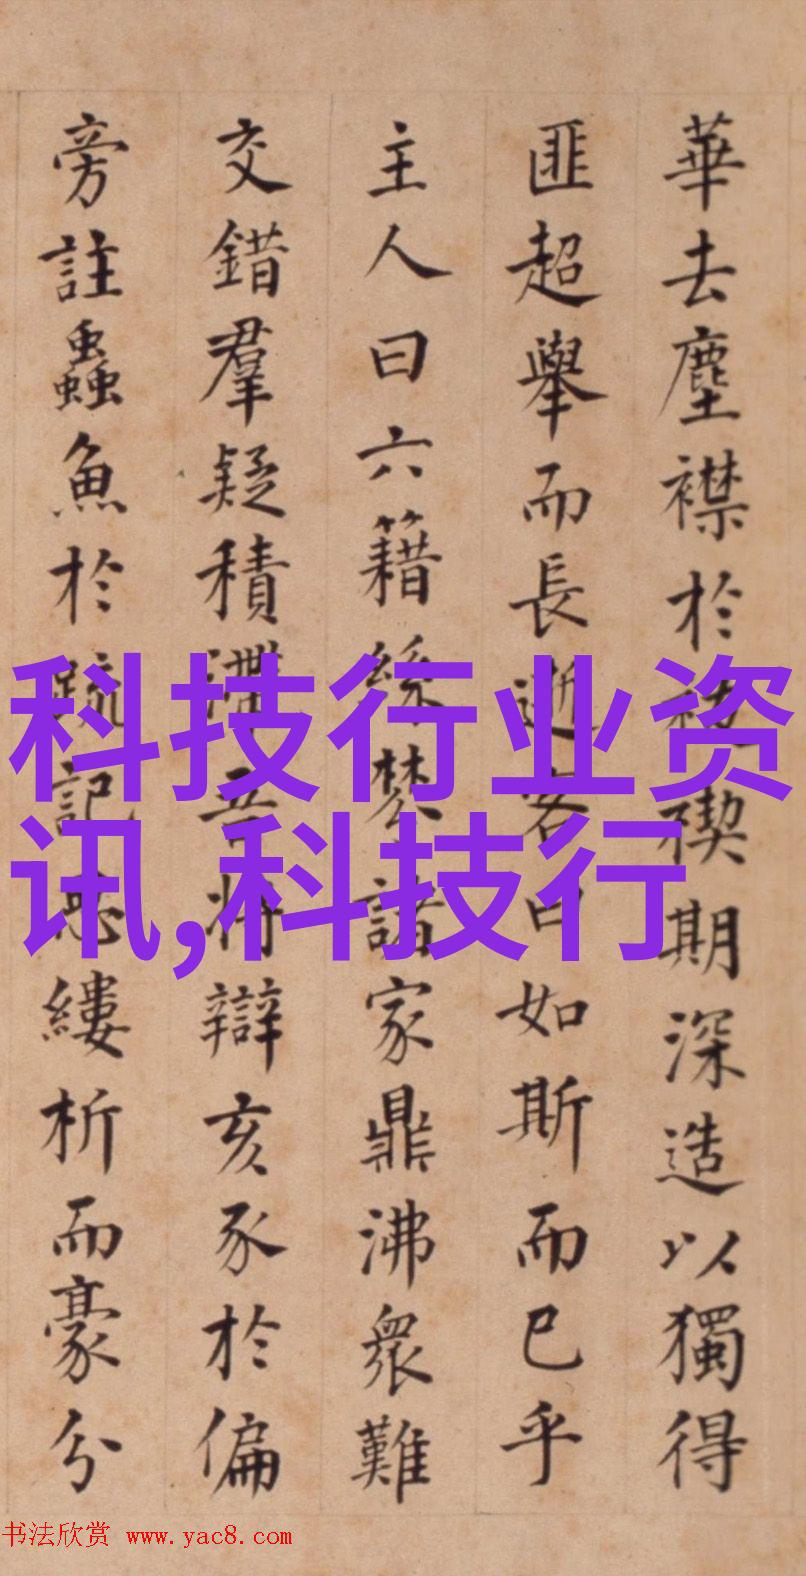 華去塵襟於初禊期深造以獨得
匪超舉而長逝客曰如斯而已乎
主人曰六籍絲棼諸家鼎沸衆難
交錯羣疑積滯吾將辯亥豕於偏
旁註蟲魚於疏記悉縷析而豪分
科技行业资
讯,科技行
书法欣赏 www.yac8.com